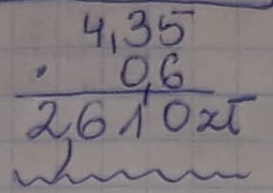 4,35
· 0,6
2,610 zł